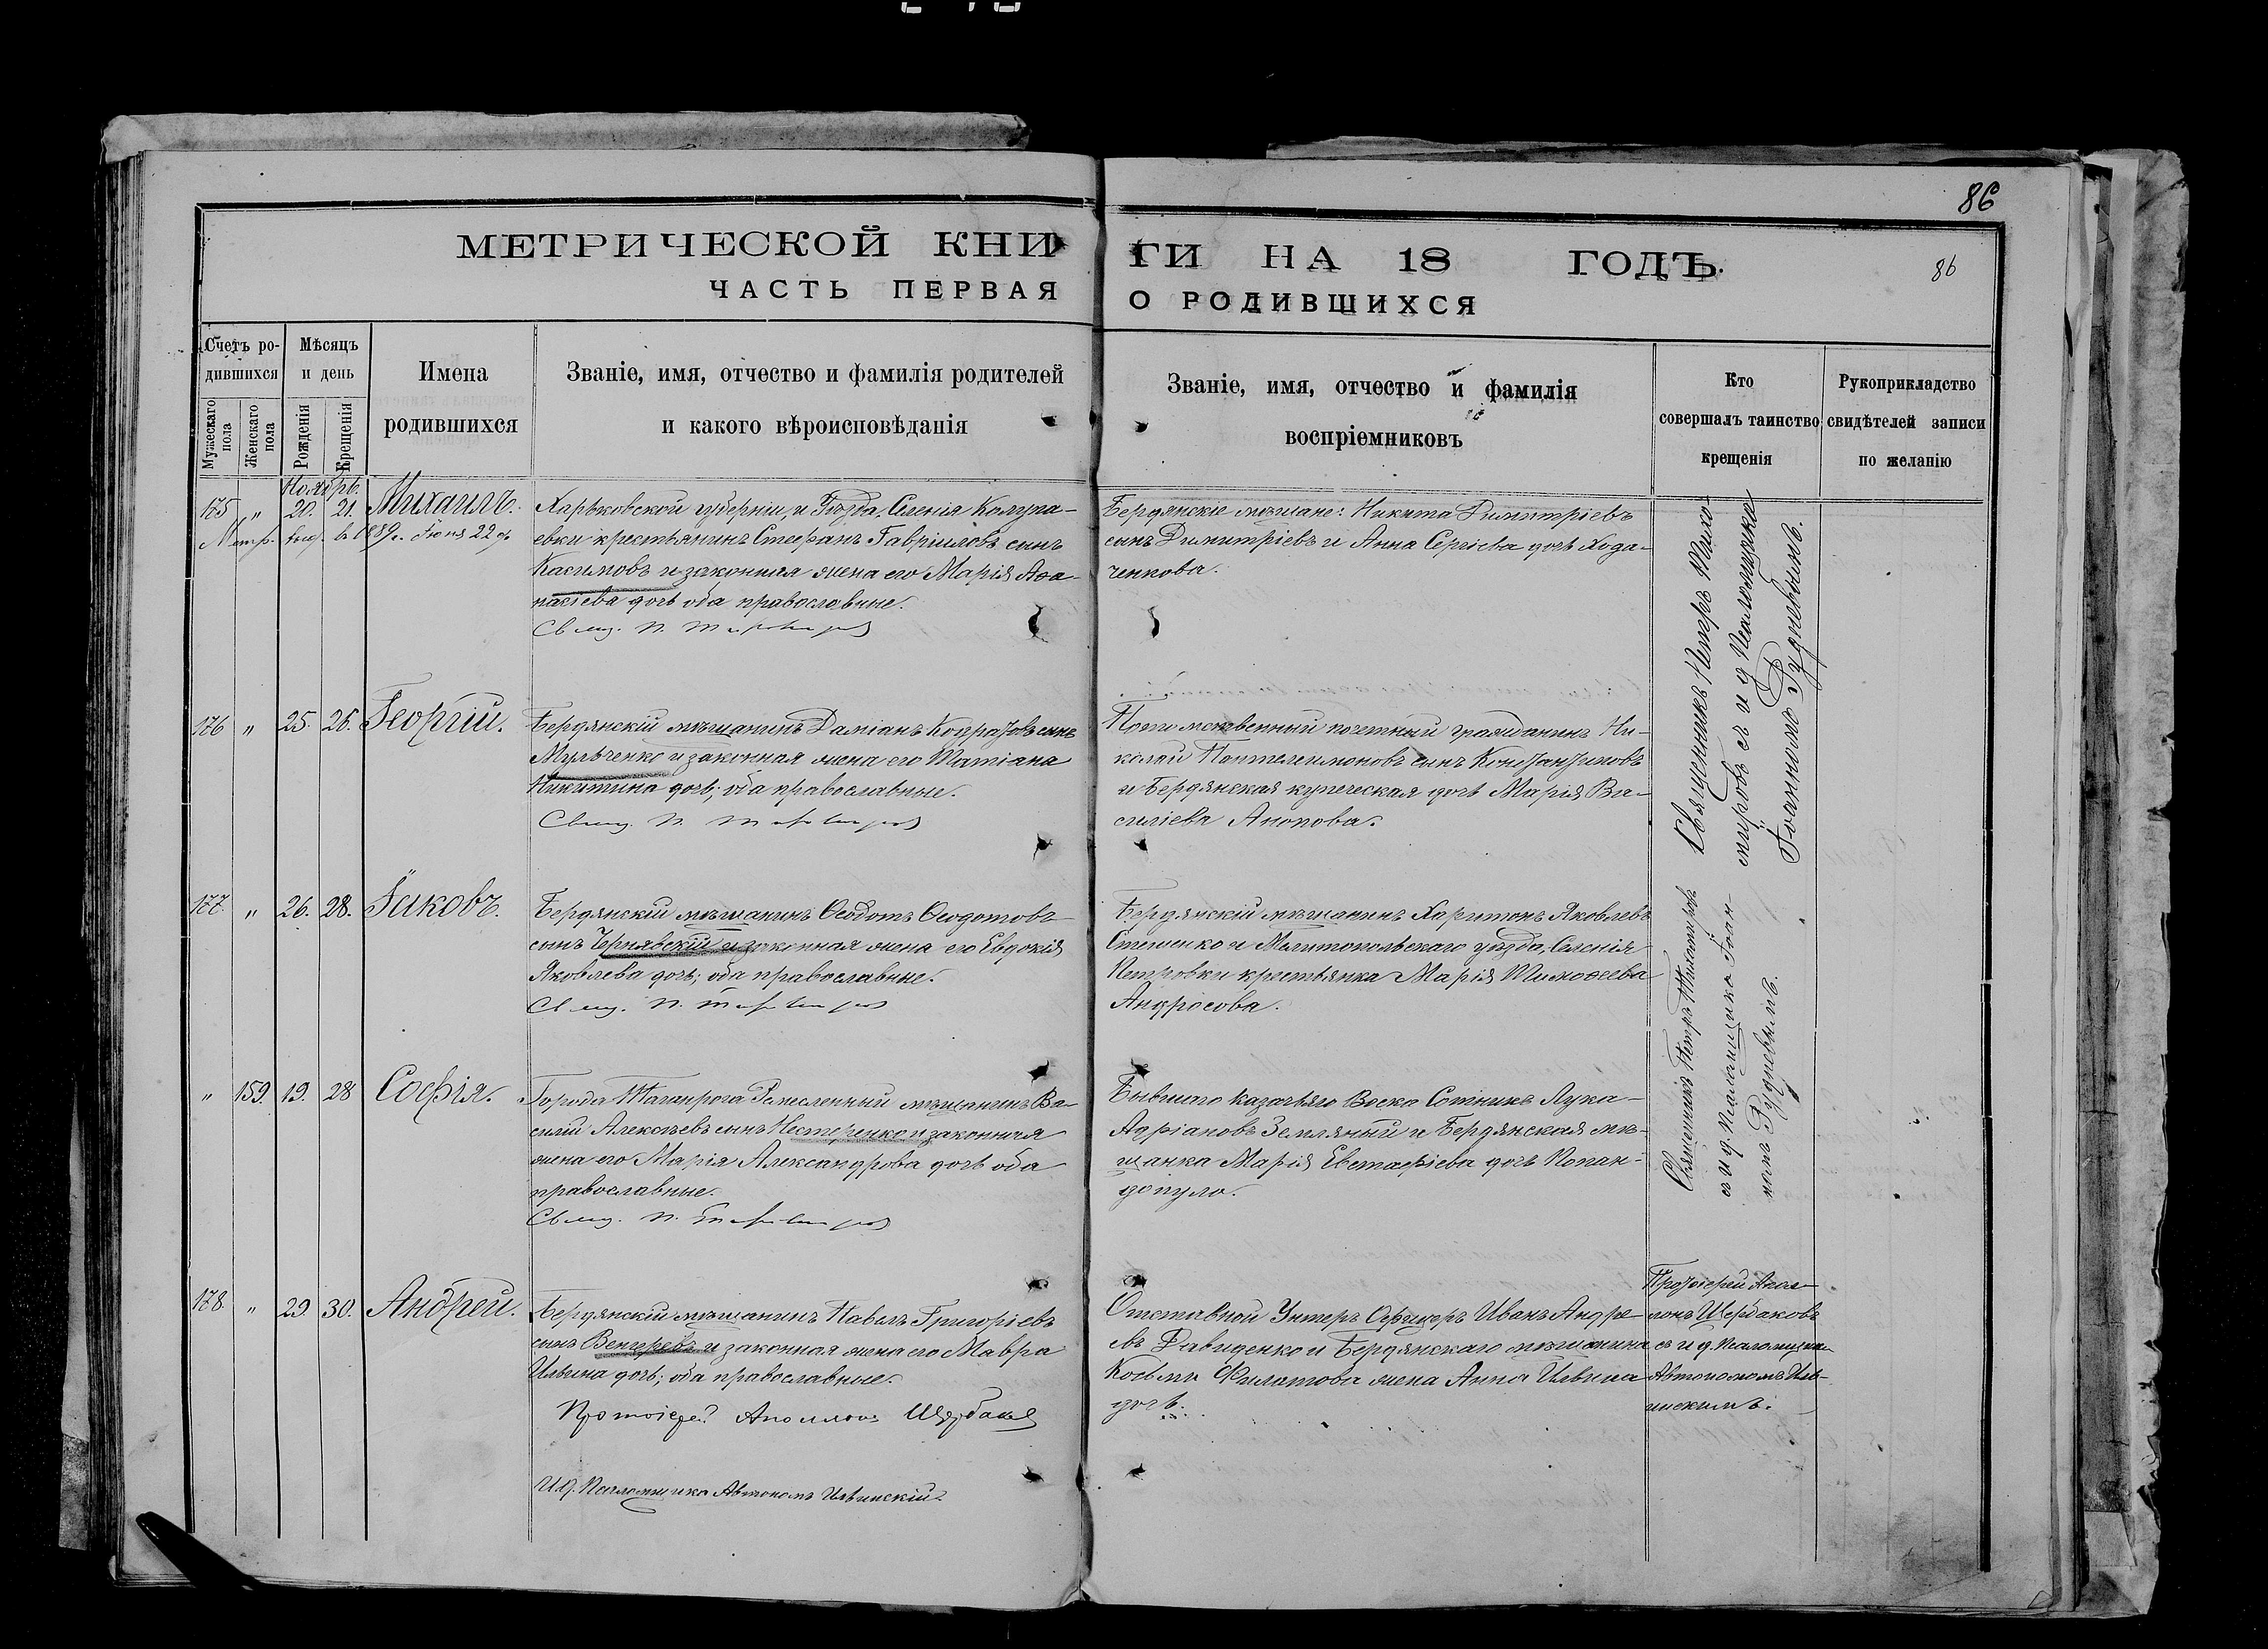 86
МЕТРИЧЕСКОЙ КНИ ГИ НА 18 ГОДЪ.
86
ЧАСТЬ ПЕРВАЯ О РОДИВШИХСЯ
Счетъ ро-
дившихся
Мужескаго пола
Женскаго пола
Мѣсяцъ
и день
Рожденія
Крещенія
Имена
родившихся
Званіе, имя, отчество и фамилія родителей
и какого вѣроисповѣданія
Званіе, имя, отчество и фамилія
воспріемниковъ
Кто
совершалъ таинство
крещенія
Рукоприкладство
свидѣтелей записи
по желанію
Ноябрь.
175 " 20. 21. Михаилъ.
Метр. выд. в 1889 г. Іюня 22 д.
Харьковской губерніи и Уѣзда, Селенія
евки крестьянинъ Стефанъ Гавріиловъ сынъ
Касимовъ и законная жена его Марія Аѳа-
насіева дочь оба православные.
Свящ. П. Тихомировъ
Бердянскіе мѣщане: Никита Димитріевъ
сынъ Димитріевъ и Анна Сергіева дочь Хода-
ченкова.
Священникъ Петръ Тихо-
мировъ съ и д Псаломщика
Іоанномъ Рудневымъ.
176 " 25. 26. Георгій.
Бердянскій мѣщанинъ Даміанъ Кондратовъ сынъ
Мульченко и законная жена его Татіана
Никитина дочь; оба православные.
Свящ. П. Тихомировъ
Потомственный почетный гражданинъ Ни-
колай Пантелеимоновъ сынъ Константиновъ
и Бердянская купеческая дочь Марія Ва-
силіева Анопова.
177. " 26. 28. Іаковъ.
Бердянскій мѣщанинъ Ѳеодотъ Ѳеодотовъ
сынъ Чернявскій и законная жена его Евдокія
Яковлева дочь; оба православные.
Свящ. П. Тихомировъ
Бердянскій мѣщанинъ Харитонъ Яковлевъ
Стешенко и Мелитопольскаго уѣзда, Селенія
Петровки крестьянка Марія Тимоѳеева
Андросова.
Священникъ Петръ Тихомировъ
съ и д. Псаломщика Іоан-
номъ Рудневымъ.
" 159. 19. 28 Софія.
Города Таганрога Ремесленный мѣщанинъ Ва-
силій Алексѣевъ сынъ Нестеренко и законная
жена его Марія Александрова дочь оба
православные.
Свящ. П. Тихомировъ
Бывшаго казачьяго Воска Сотникъ Лука
Адріановъ Земляный и Бердянская мѣ-
щанка Марія Евстафіева дочь Попан-
допуло.
178. " 29. 30. Андрей.
Бердянскій мѣщанинъ Павелъ Григоріевъ
сынъ Венгеревъ и законная жена его Мавра
Ильина дочь; оба православные.
Протоіерей Аполлонъ Щербаковъ
И. д. Псаломщика Автономъ Ильинскій.
Отставной Унтеръ Офицеръ Иванъ Андре-
евъ Давиденко и Бердянскаго мѣщанина
Косьмы Филатова жена Анна Ильина
дочь.
Протоіерей Апол-
лонъ Щербаковъ
съ и д. Псаломщика
Автономомъ Иль-
инскимъ.